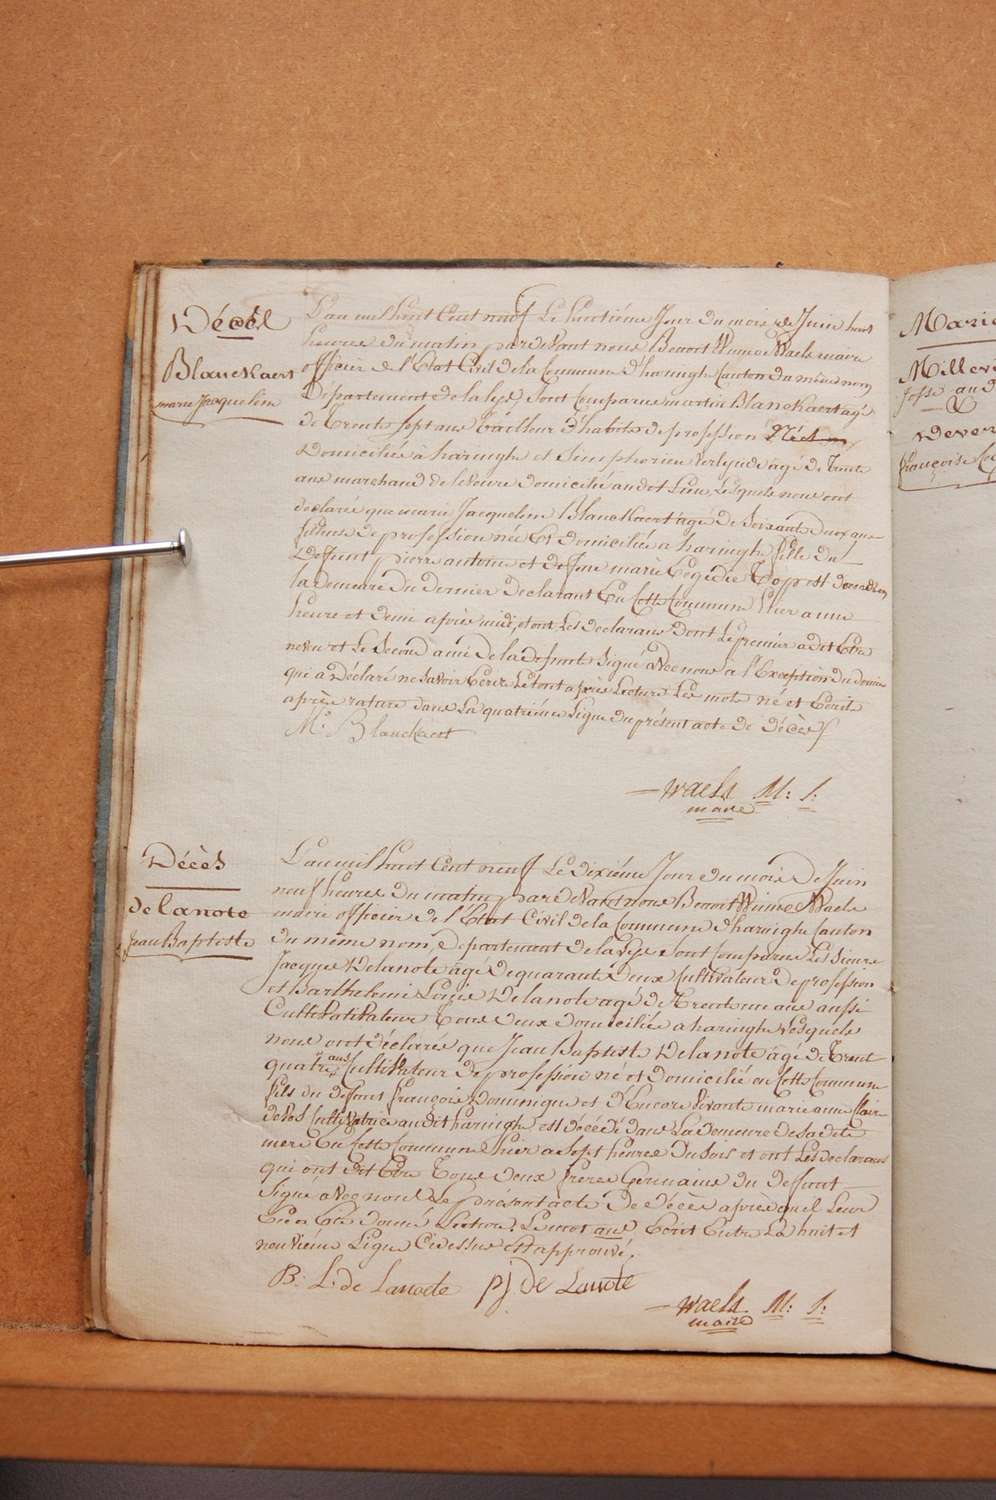 Décès
Blanckaert
marie Jacqueline
L'an mil huit Cent neuf Le huitième Jour du mois de Juin huit
heures du matin pardevant nous Benoit Winoc Waels maire
officier de l'Etat Civil de la Commune d'haringhe Canton du même nom
Département de la Lys, sont Comparus martin Blanckaert agé
de trente sept ans tailleur d'habits de profession
Domicilié à haringhe et Simphorien agé de trente
ans marchand de domicilié audit Lieu, Lesquels nous ont
declarés que marie Jacqueline Blanckaert agée de Soixante Deux ans
fileuse de profession née Et domiciliée a haringhe fille du
Deffunt pierre antoine et de feue marie decedée en
la demeure du dernier declarant En Cette Commune hier a une
heure et demie après midi, et ont Les declarans dont Le premier a dit Etre
neveu et Le Second ami de la defunte Signé avec nous à l'Exception du dernier
qui a Déclaré ne Savoir Ecrire Le tout après Lecture Les mots né et Ecrits
après rature dans La quatrième Ligne du présent acte de décès
M: Blanckaert
Waels M: S:
maire
Décès
de lanote
Jean Baptiste
L'an mil huit Cent neuf Le dixième Jour du mois De Juin
neuf heures du matin par devant nous Benoit Winoc Waels
maire officier de l'Etat Civil de la Commune d'haringhe Canton
du même nom, Département de la Lys sont Comparus Les Sieurs
Jacques Delanote agé de quarante deux Cultivateur de profession
et Barthelemi Louis Delanote agé de Trente un ans aussi
Tous deux domiciliés a haringhe Lesquels
nous ont déclarés que Jean Baptiste Delanote agé de Trente
quatre ans Cultivateur de profession né et domicilié en Cette Commune
fils du defunt François Dominique et d'Encore Vivante marie anne Claire
de Vos Cultivatrice audit haringhe est décédé dans La demeure de Sa dite
mere En Cette Commune hier a Sept heures du Soir et ont Les declarans
qui ont dit Etre Tous deux freres Germains du deffunt
Signé avec nous Le présent acte De décès après qu'il Leur
En a Eté donné Lecture. Le mot ans Ecrit Entre La huit et
neuvième Ligne Cidessus Est approuvé.
B: L: de Lanote pj de Lanote
Waels M: S:
maire
Mari
Millev
Josse
&
Dever
françoise